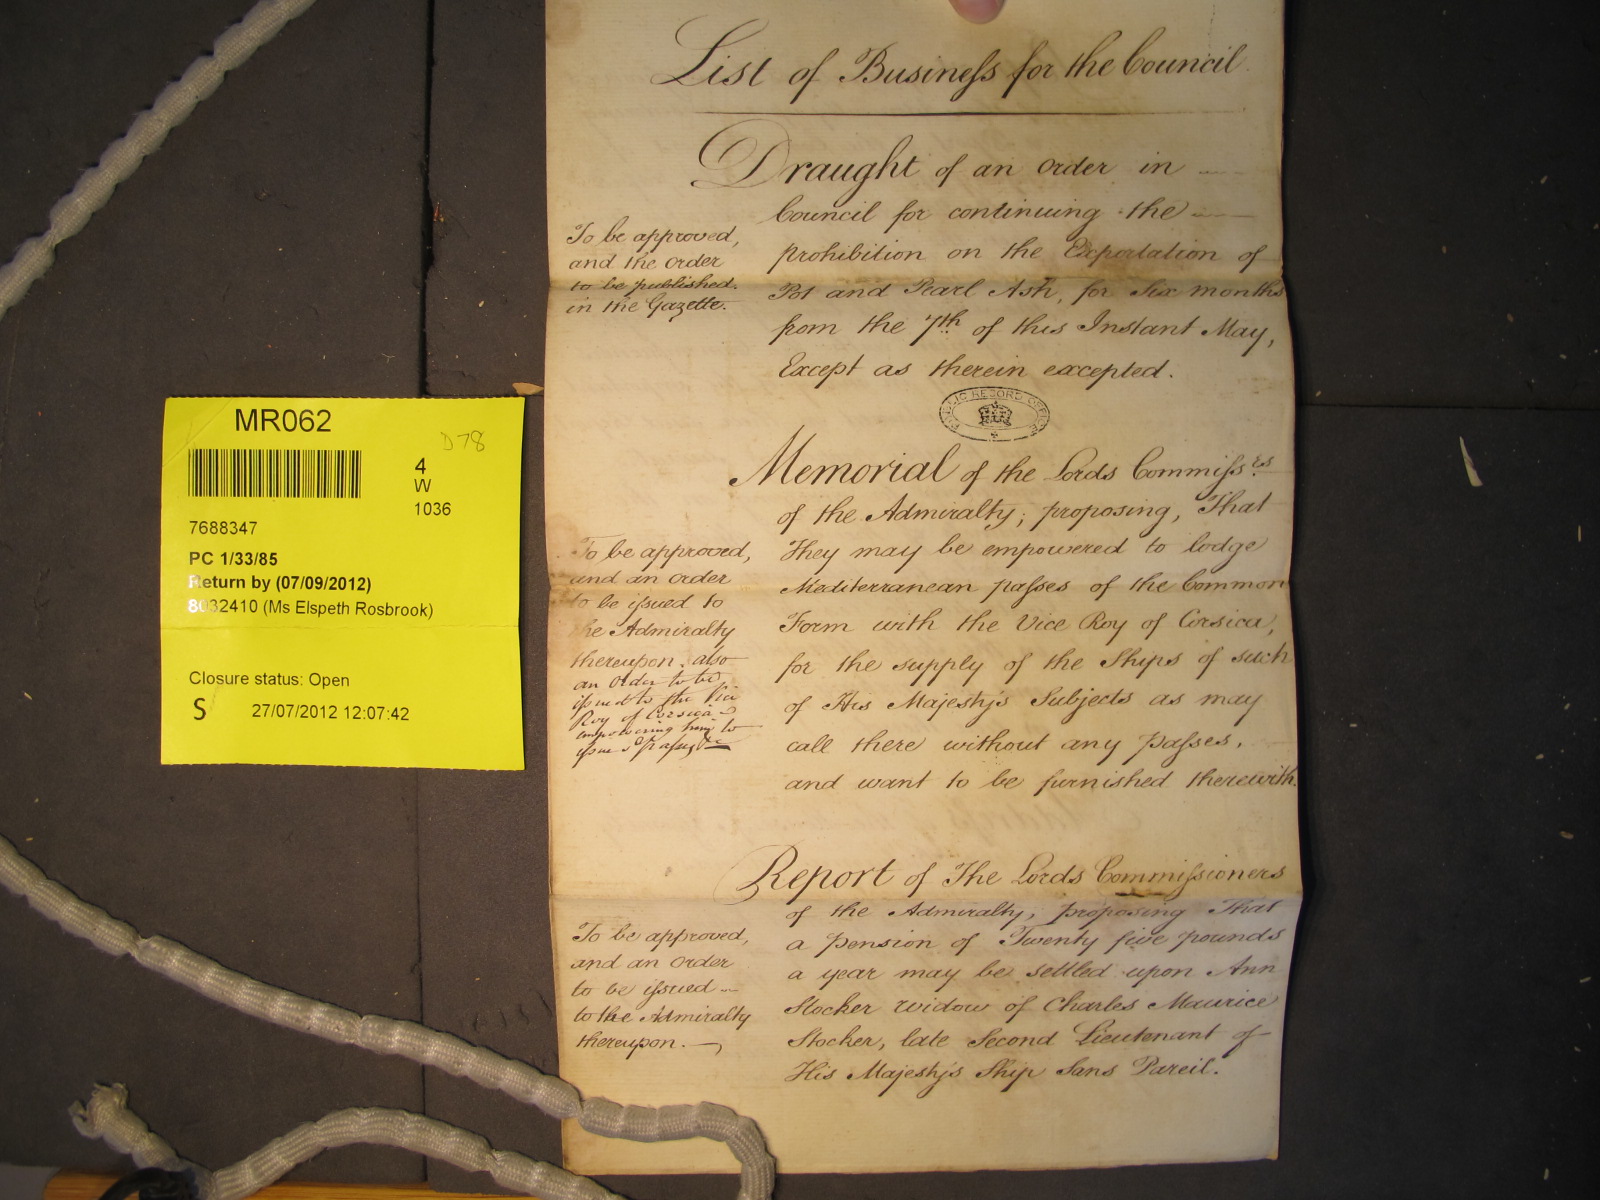 List of Busineſs for the Council
Draught of an order in
Council for continuing the
prohibition on the Exportation of
Pot and Pearl Ash, for Six months
from the 7th of this Instant May,
Except as therein excepted.
To be approved,
and the order
to be published
in the Gazette.
PUBLIC RECORD OFFICE
Memorial of the Lords Commiſsrs
of the Admiralty; proposing, That
They may be empowered to lodge
Mediterranean paſses of the Common
Form with the Vice Roy of Corsica,
for the supply of the Ships of such
of His Majesty's Subjects as may
call there without any Paſses,
and want to be furnished therewith.
To be approved,
and an order
to be iſsued to
he Admiralty
thereupon. also
an Order to be
iſsued to the Vice
Roy of Corsica
empowering him to
iſsue
Report of The Lords Commiſsioners
of the Admiralty, proposing That
a Pension of Twenty five pounds
a year may be settled upon Ann
Stocker Widow of Charles Maurice
Stocker, late Second Lieutenant of
His Majesty's Ship Sans Pareil.
To be approved,
and an order
to be iſsued
to the Admiralty
thereupon.
MR062
D78
4
W
1036
7688347
PC 1/33/85
Return by (07/09/2012)
8032410 (Ms Elspeth Rosbrook)
Closure status: Open
S 27/07/2012 12:07:42